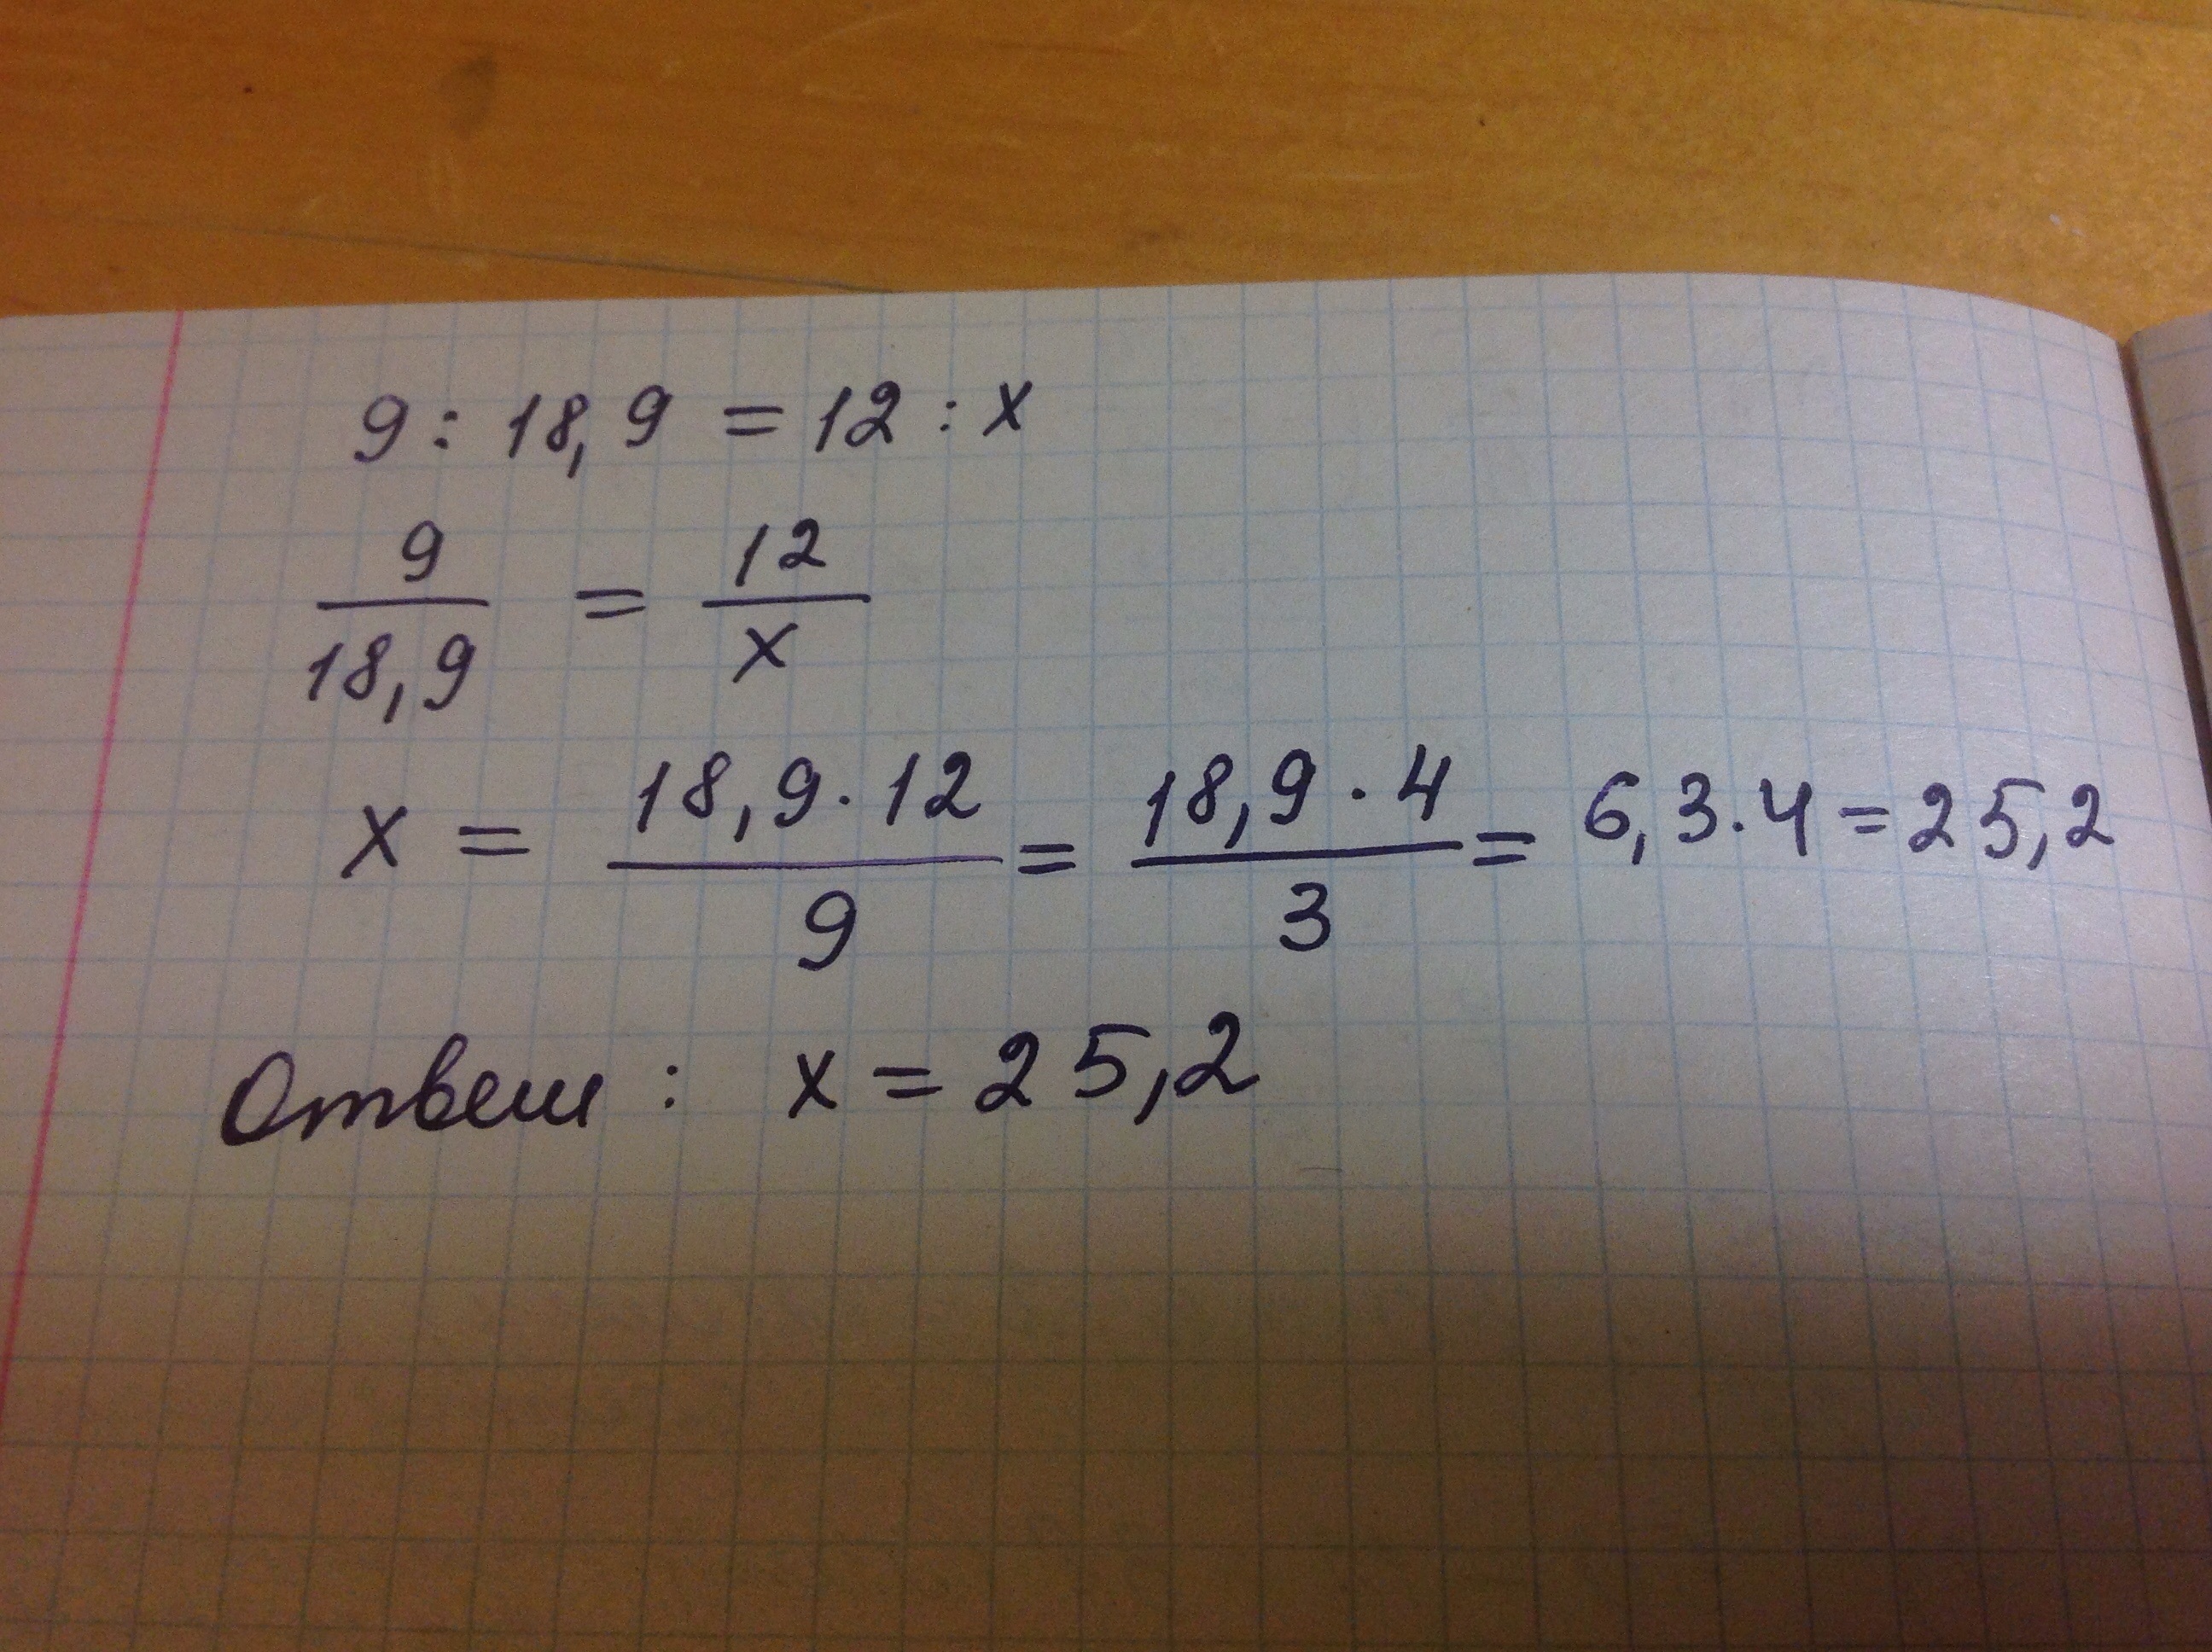 9 : 18,9 = 12 : x
9/18,9 = 12/x
x = 18,9 · 12/9 = 18,9 · 4/3 = 6,3 · 4 = 25,2
Ответ : x = 25,2